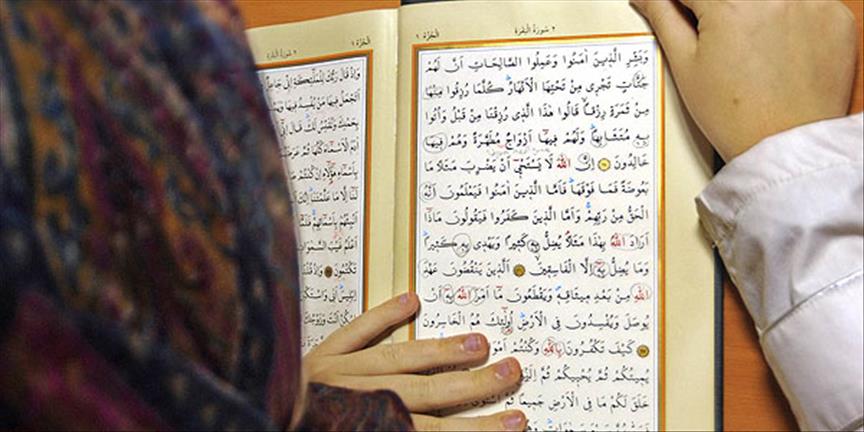 الجزء ١ ٢ سورة البقرة
وَبَشِّرِ الَّذِينَ اٰمَنُوا وَعَمِلُوا الصَّالِحَاتِ اَنَّ لَهُمْ
جَنَّاتٍ تَجْرِى مِنْ تَحْتِهَا الْاَنْهَارُ كُلَّمَا رُزِقُوا مِنْهَا
مِنْ ثَمَرَةٍ رِزْقًا قَالُوا هٰذَا الَّذِى رُزِقْنَا مِنْ قَبْلُ وَاُتُوا
بِهِ مُتَشَابِهًا وَلَهُمْ فِيهَا اَزْوَاجٌ مُطَهَّرَةٌ وَهُمْ فِيهَا
خَالِدُونَ اِنَّ اللّٰهَ لَا يَسْتَحْيِى اَنْ يَضْرِبَ مَثَلًا مَا
بَعُوضَةً فَمَا فَوْقَهَا فَاَمَّا الَّذِينَ اٰمَنُوا فَيَعْلَمُونَ اَنَّهُ
الْحَقُّ مِنْ رَبِّهِمْ وَاَمَّا الَّذِينَ كَفَرُوا فَيَقُولُونَ مَاذَا
اَرَادَ اللّٰهُ بِهٰذَا مَثَلًا يُضِلُّ بِهِ كَثِيرًا وَيَهْدِى بِهِ كَثِيرًا
وَمَا يُضِلُّ بِهِ اِلَّا الْفَاسِقِينَ اَلَّذِينَ يَنْقُضُونَ عَهْدَ
اللّٰهِ مِنْ بَعْدِ مِيثَاقِهِ وَيَقْطَعُونَ مَا اَمَرَ اللّٰهُ بِهِ اَنْ
يُوصَلَ وَيُفْسِدُونَ فِى الْاَرْضِ اُولٰئِكَ هُمُ الْخَاسِرُونَ
كَيْفَ تَكْفُرُونَ بِاللّٰهِ وَكُنْتُمْ
يُمِيتُكُمْ ثُمَّ يُحْيِيكُمْ ثُمَّ
خَلَقَ لَكُمْ مَا فِى الْاَرْضِ جَمِيعًا ثُمَّ
الجزء ١ ٢ سورة البقرة
وَاِذْ قَالَ رَبُّكَ لِلْمَلٰئِكَةِ اِنِّى
اَتَجْعَلُ فِيهَا مَنْ يُفْسِدُ فِيهَا
بِحَمْدِكَ وَنُقَدِّسُ لَكَ قَالَ اِنِّى
اٰدَمَ الْاَسْمَاءَ كُلَّهَا ثُمَّ
بِاَسْمَاءِ هٰؤُلَاءِ اِنْ كُنْتُمْ
لَنَا اِلَّا مَا عَلَّمْتَنَا
اَنْبِئْهُمْ بِاَسْمَائِهِمْ
اَعْلَمُ غَيْبَ السَّمٰوَاتِ
تَكْتُمُونَ